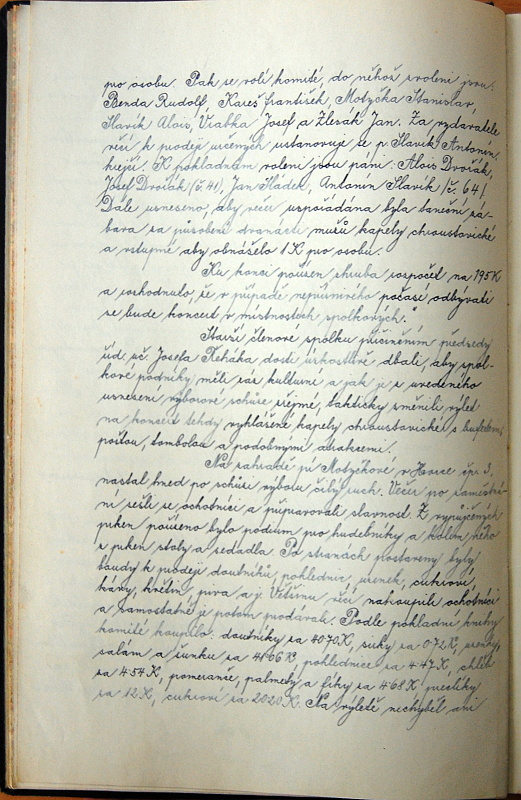 pro osobu. Pak se volí komité, do něhož zvoleni jsou:
Benda Rudolf, Kareš František, Motyčka Stanislav,
Slavík Alois, Vrabka Josef a Zlesák Jan. Za vydavatele
věcí k prodeji určených ustanovuje se p. Slavík Antonín.
K pokladnám voleni jsou páni: Alois Dvořák,
Josef Dvořák (č. 41), Jan Sládek, Antonín Slavík /č. 64/.
Dále usneseno, aby večer uspořádána byla taneční zá-
bava za působení dvanácti mužů kapely chroustovické
a vstupné aby obnášelo 1 K pro osobu.
Ku konci pořízen zhruba rozpočet na 195 K
a rozhodnuto, že v případě nepříznivého počasí odbývati
se bude koncert v místnostech spolkových."
Starší členové spolku přičiněním předsedy
říd. uč. Josefa Řeháka dosti úzkostlivě dbali, aby spol-
kové podniky měly ráz kulturní a jak je z uvedeného
usnesení výborové schůze zřejmé, takticky změnili výlet
na koncert tehdy vyhlášené kapely chroustovické s
poštou, tombolou a podobnými atrakcemi.
Na zahradě pí Motyčkové v Horce čp. 3,
nastal hned po schůzi výboru čilý ruch. Večer po zaměstná-
ní sešli se ochotníci a připravovali slavnost. Z vypůjčených
prken pořízeno bylo pódium pro hudebníky a kolem něho
z prken stoly a sedadla. Po stranách postaveny byly
boudy k prodeji doutníků, pohlednic, uzenek, cukroví,
kávy, květin, piva a j. Většinu věcí nakoupili ochotníci
a samostatně je potom prodávali. Podle pokladní knihy
komité koupilo: doutníky za 40·70 K, sirky za 0·72 K, uzenky,
salám a šunku za 41·06 K, pohlednice za 4·47 K, chléb
za 4·54 K, pomeranče, palmety a fíky za 4·68 K, preclíky
za 12 K, cukroví za 20·20 K. Na výletě nechyběl ani